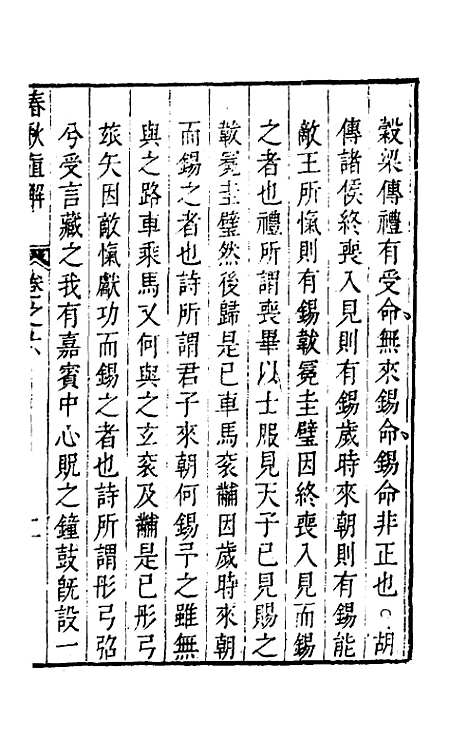 穀梁傳禮有受命無來錫命錫命非正也○胡
傳諸侯終喪入見則有錫歲時來朝則有錫能
敵王所愾則有錫韍冕圭璧因終喪入見而錫
之者也禮所謂喪畢以士服見天子已見賜之
韍冕圭璧然後歸是已車馬袞黼因歲時來朝
而錫之者也詩所謂君子來朝何錫予之雖無
與之路車乘馬又何與之玄袞及黼是已彤弓
玈矢因敵愾獻功而錫之者也詩所謂彤弓弨
兮受言藏之我有嘉賓中心貺之鐘鼓旣設一
春秋直解 卷之六 二